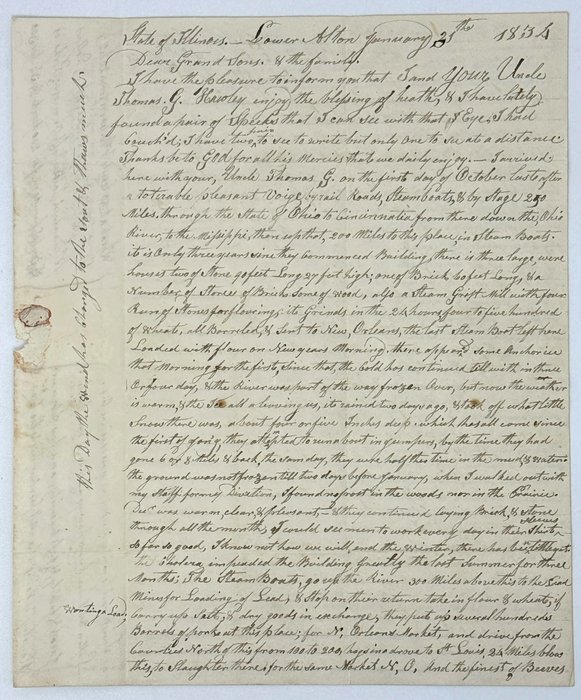 State of Illinois. — Lower Alton January 31th 1834
Dear Grand Sons. & the family.
I have the pleasure to inform you that I and your Uncle
Thomas. G. Hawley enjoy the blessing of heath, & I have lately
found a pair of Specks that I can see with that Eye, I had
Couch'd; I have two, pair to see to write but only one to see at a distance
Thanks be to GOD for all his Mercies that we daily enjoy. — I arrived
here with your, Uncle Thomas G. on the first day of October last after
a tolerable pleasant Voige, by rail Roads, Steam boats, & by Stage 250
Miles, through the State of Ohio to Cincinnatia from there down the Ohio
River, to the Misippi, then up that, 200 Miles to this place, in Steam Boats.
it is Only three years since they Commenced Building, there is three large, ware
houses two of Stone 90 feet Long 27 foot high; one of Brick 60 feet Long, & a
Number of Stores of Brick & Some of wood, also a Steam Grist Mill with four
Run of Stones for flouring; it Grinds in the 24 hours, four to five hundred
of Wheate, all Barreled, & Sent to New, Orleans, the last Steam Boat left here
Loaded with flour on New years Morning. there appeared Some Anchor ice
that Morning for the first, Since that, the Cold has continued till with in three
Or four day, & the River was part of the way frozen Over, but now the weather
is warm, & the Ice all a leaving us, it rained two days ago, & took of what little
Snow there was, about four or five Inches deep. which has all come since
the first of Jany, they attempted to run about in jumpers, by the time they had
gone 6 or 8 Miles & back, the same day, they ware half the time in the mud, & water:
the ground was not frozen till two days before January, when I walked out with
my Staff form Divertion, I found no frost in the woods nor in the Prairie
Decr was warm, clear, & pleasant, — & they continued laying Brick, & Stone
through all the month, I would see men to work every day in their Shirt Sleeves
So far so good, I know not how we will, end the Winter, there has been
the Cholera impeaded the Building Greatly the last Summer for three
Months; The Steam Boats, go up the River 300 Miles above this to the Lead
Mines for Loading of Lead, & Stop on their return take in flour & wheate; if
Wanting a Load,
carry up Salt, & dry goods in exchange, they put up several hundreds
Barrels of pork out this place; for N, Orleans Market, and drive from the
Counties North of this from 100 to 200, hogs in a drove to St Louis, 24 Miles blow
this, to Slaughter there; for the same Market N, O. And the finest of Beeves
This Day the Wind has Changed to the East & thaws much.